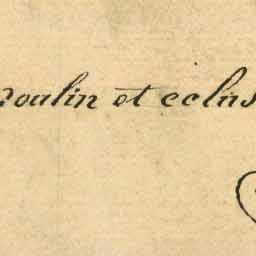 oulin et eclus